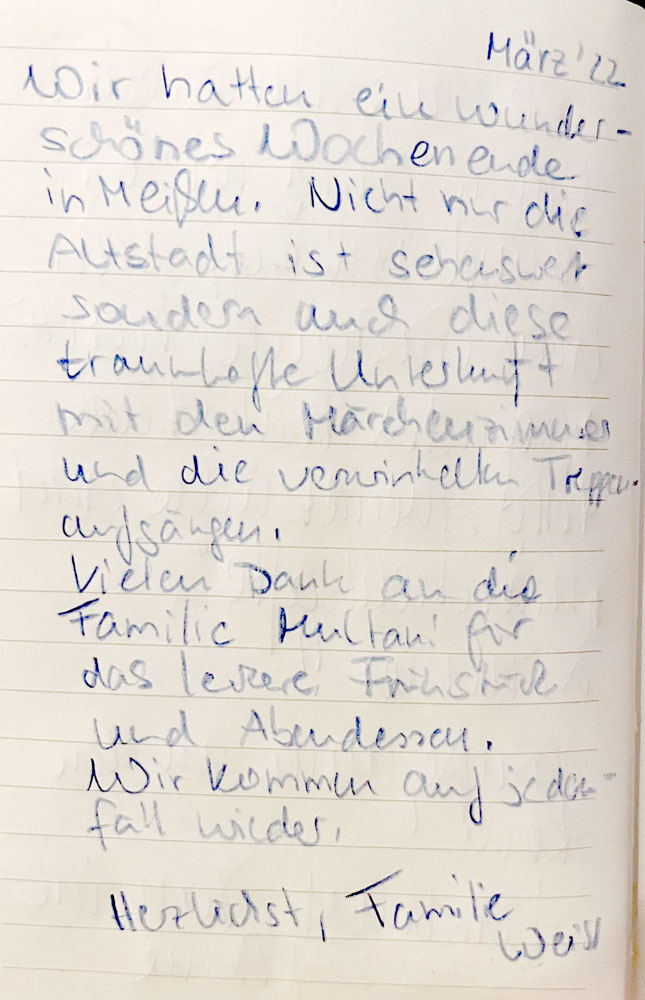 März '22
Wir hatten ein wunder-
schönes Wochenende
in Meißen. Nicht nur die
Altstadt ist sehenswert
sondern auch diese
traumhafte Unterkunft
mit den Märchenzimmer
und die verwinkelten Treppen-
aufgängen.
Vielen Dank an die
Familie Multani für
das leckere Frühstück
und Abendessen.
Wir kommen auf jeden-
fall wieder.
Herzlichst, Familie